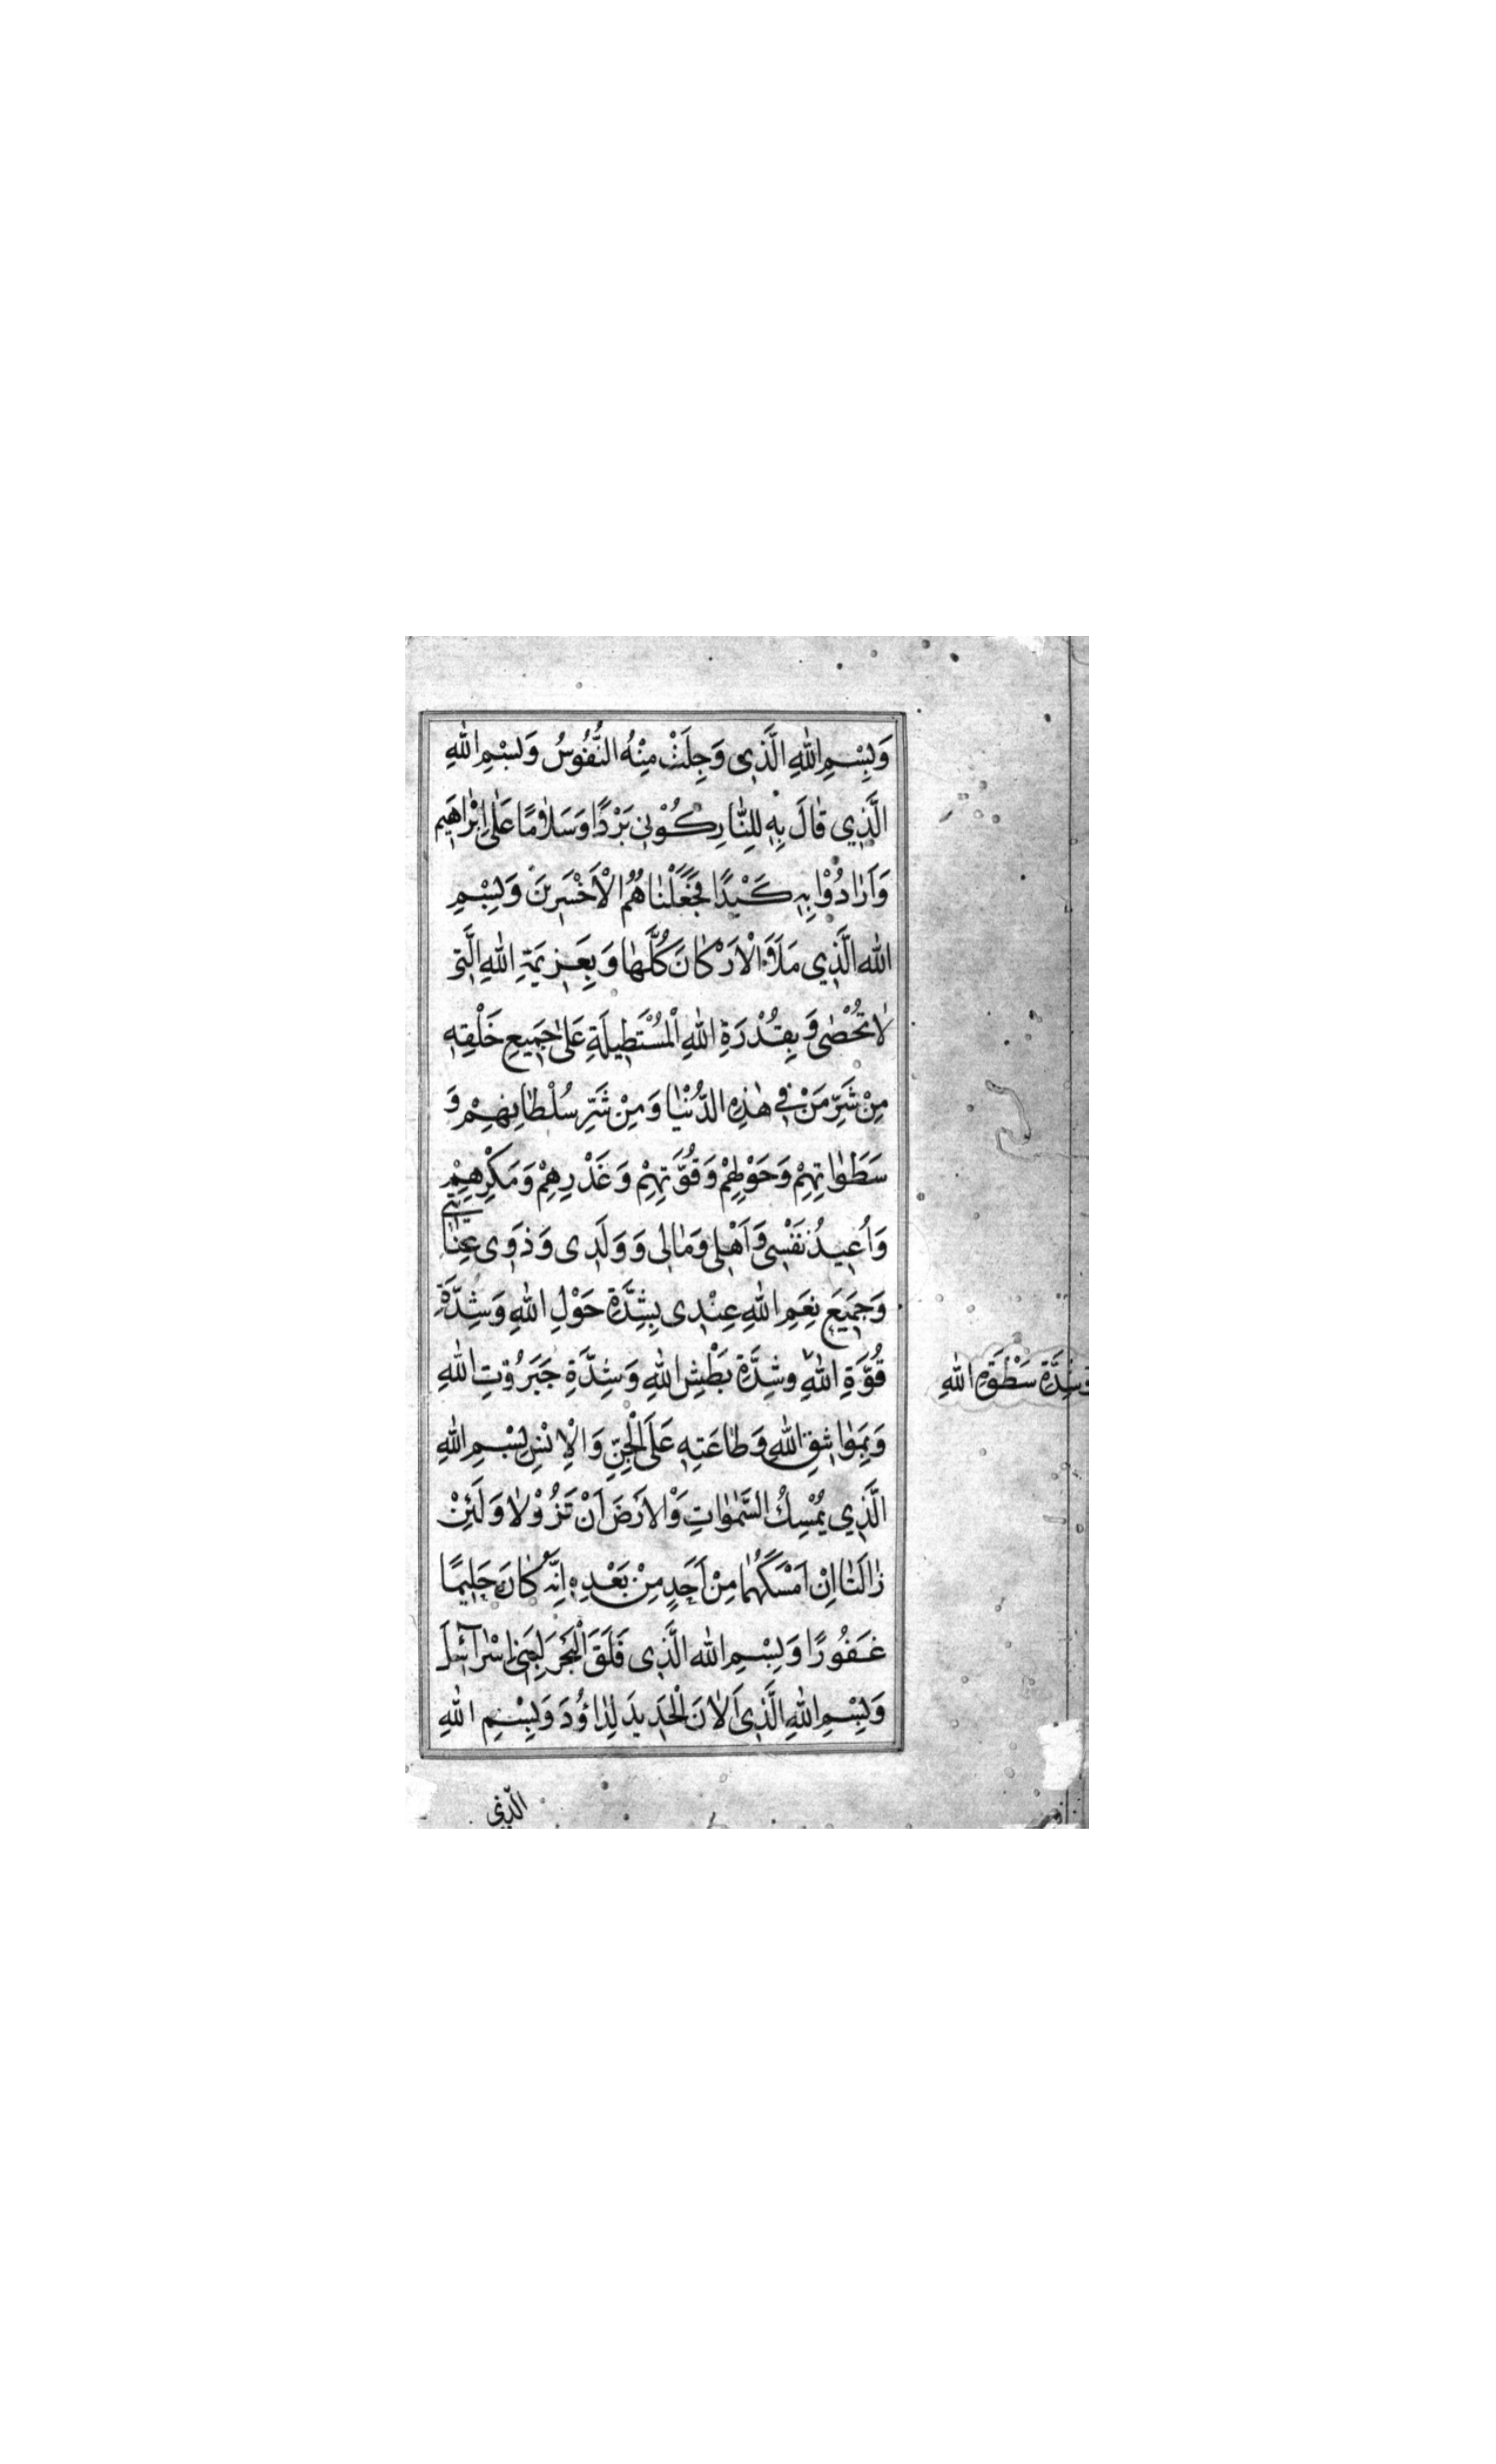 وَبِسْمِ اللهِ الَّذِي وَجِلَتْ مِنْهُ النُّفُوسُ وَبِسْمِ اللهِ
الَّذِي قَالَ بِهِ لِلنَّارِ كُوْنِي بَرْدًا وَسَلَامًا عَلَى اِبْرَاهِيمَ
وَاَرَادُوْا بِهِ كَيْدًا فَجَعَلْنَاهُمُ الْاَخْسَرِينَ وَبِسْمِ
اللهِ الَّذِي مَلَاَ الْاَرْكَانَ كُلَّهَا وَبِعَزِيمَةِ اللهِ الَّتِي
لَا تُحْصٰى وَبِقُدْرَةِ اللهِ الْمُسْتَطِيلَةِ عَلٰى جَمِيعِ خَلْقِهِ
مِنْ شَرِّ مَنْ فِي هٰذِهِ الدُّنْيَا وَمِنْ شَرِّ سُلْطَانِهِمْ وَ
سَطَوَاتِهِمْ وَحَوْلِهِمْ وَقُوَّتِهِمْ وَغَدْرِهِمْ وَمَكْرِهِمْ
وَاُعِيذُ نَفْسِي وَاَهْلِي وَمَالِي وَوَلَدِي وَذَوِي عِنَايَتِي
وَجَمِيعَ نِعَمِ اللهِ عِنْدِي بِشِدَّةِ حَوْلِ اللهِ وَشِدَّةِ
قُوَّةِ اللهِ وشِدَّةِ بَطْشِ اللهِ وَشِدَّةِ جَبَرُوْتِ اللهِ
وَشِدَّةِ سَطْوَةِ اللهِ
وَبِمَوَاثِيقِ اللهِ وَطَاعَتِهِ عَلَى الْجِنِّ وَالْاِنْسِ بِسْمِ اللهِ
الَّذِي يُمْسِكُ السَّمٰوَاتِ وَالْاَرْضَ اَنْ تَزُوْلَا وَلَئِنْ
زَالَتَا اِنْ اَمْسَكَهُمَا مِنْ اَحَدٍ مِنْ بَعْدِهِ اِنَّهُ كَانَ حَلِيمًا
غَفُورًا وَبِسْمِ اللهِ الَّذِي فَلَقَ الْبَحْرَ لِبَنِي اِسْرَآئِيلَ
وَبِسْمِ اللهِ الَّذِي اَلَانَ الْحَدِيدَ لِدَاوُدَ وَبِسْمِ اللهِ
الَّذِي